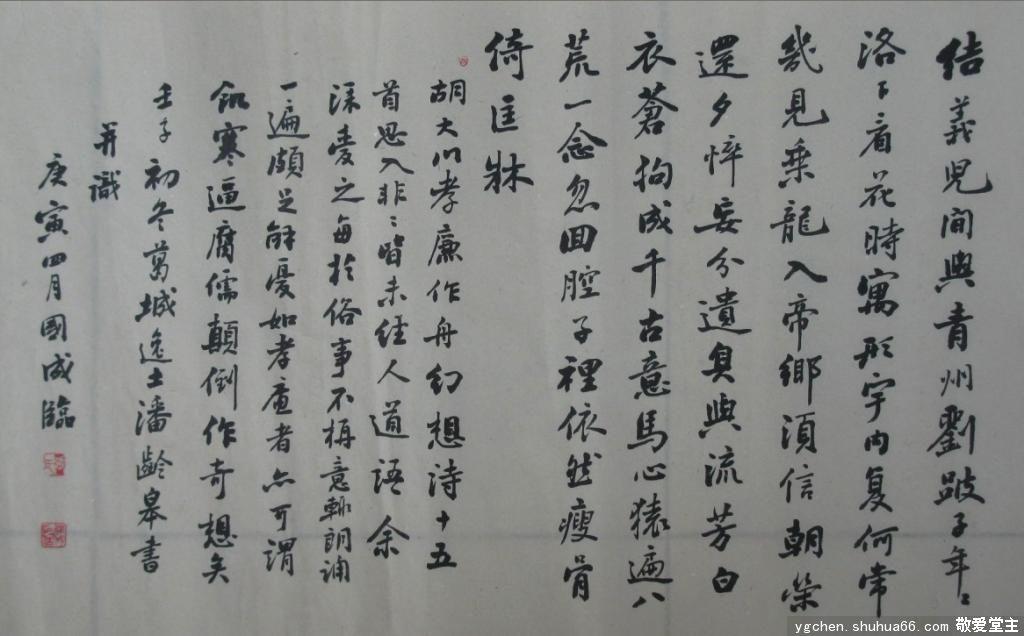 结義児間與青州劉跛子年〻
洛下看花時寓形宇内复何常
幾見乗龍入帝鄉須信朝榮
還夕悴妄分遺臭與流芳白
衣蒼狗成千古意馬心猿遍八
荒一念忽回腔子裡依然瘦骨
倚匡牀
胡大川孝廉作舟幻想诗十五
首思入非〻皆未经人道语余
深愛之每於俗事不称意輙朗诵
一遍頗足解優如孝廉者亦可謂
飢寒逼腐儒顛倒作奇想矣
壬子初冬葛城逸士潘齡皋書
并識
庚寅四月國成臨
ygchen.shuhua66.com 敬爱堂主